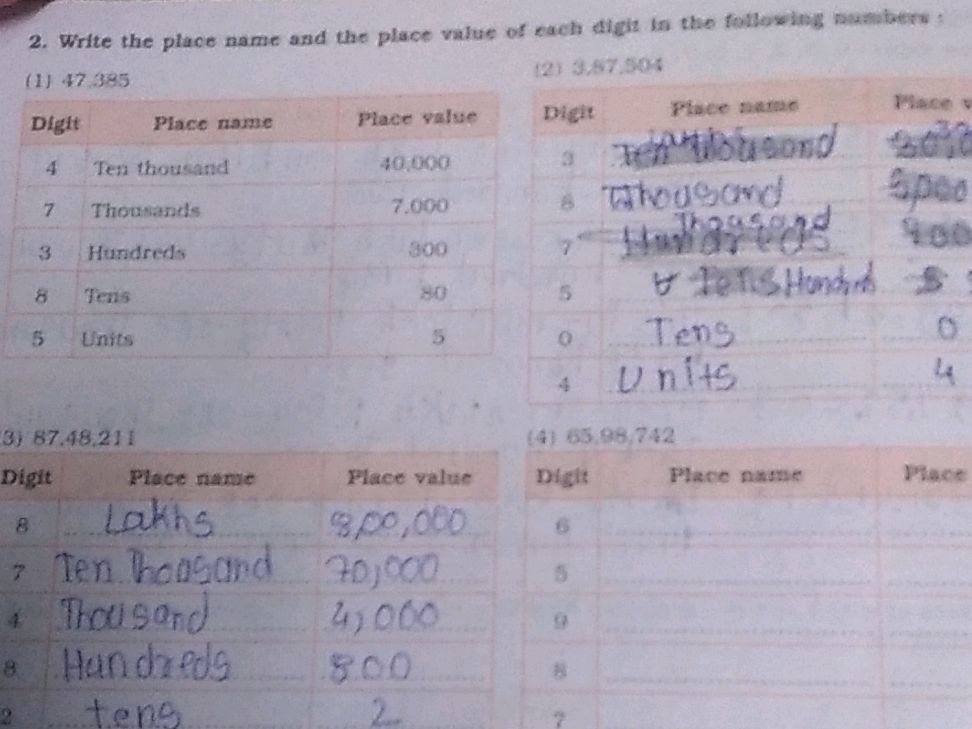 2. Write the place name and the place value of each digit in the following numbers :
(1) 47,385
Digit Place name Place value
4 Ten thousand 40,000
7 Thousands 7,000
3 Hundreds 300
8 Tens 80
5 Units 5
(2) 3,87,504
Digit Place name Place v
3
8 Thousand
7 Thousand
5 Tens Hundreds
0 Tens 0
4 Units 4
3) 87,48,211
Digit Place name Place value
8 Lakhs 8,00,000
7 Ten Thoasand 70,000
4 Thousand 4,000
8 Hundreds 800
2 tens 2
(4) 65,98,742
Digit Place name Place
6
5
9
8
7